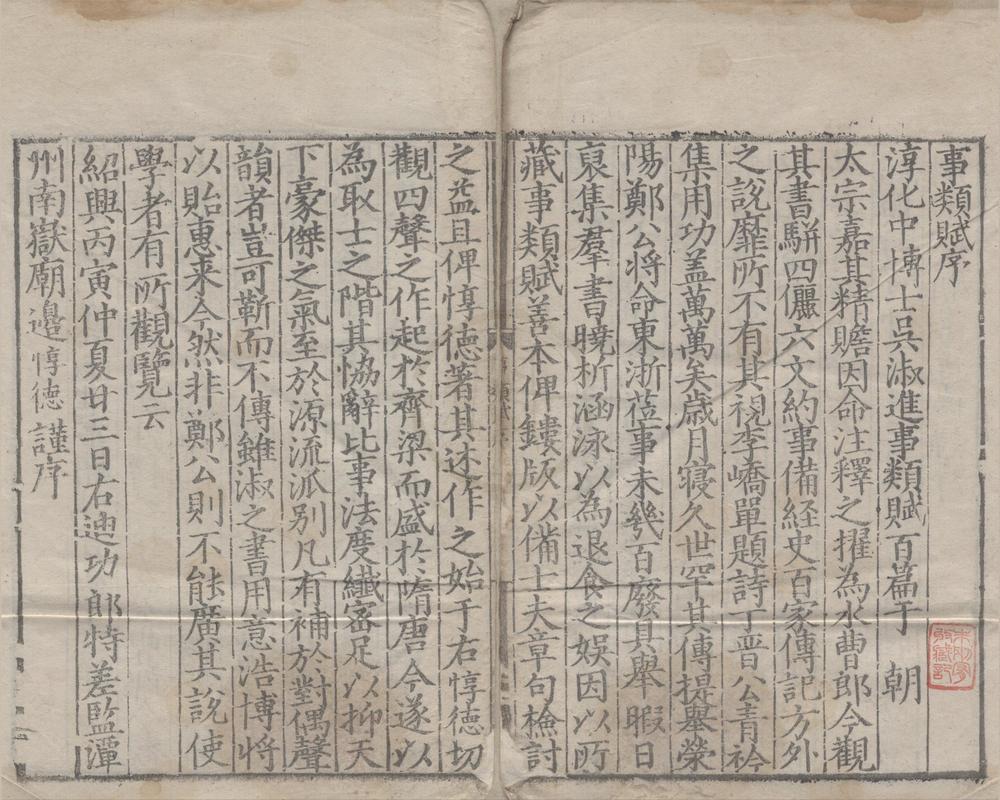 事類賦序
淳化中博士吳淑進事類賦百篇于 朝
太宗嘉其精贍因命注釋之擢為水曹郎今觀
其書駢四儷六文約事備経史百家傳記方外
之說靡所不有其視李嶠單題詩丁晉公青衿
集用功盖萬萬矣歲月寖久世罕其傳提舉榮
陽鄭公将命東浙蒞事未幾百廢具舉暇日
裒集羣書曉析涵泳以為退食之娛因以所
藏事類賦善本俾鏤版以備士夫章句檢討
之益且俾惇德著其述作之始于右惇德切
觀四聲之作起於齊梁而盛於隋唐今遂以
為取士之階其協辭比事法度纖密足以抑天
下豪傑之氣至於源流派别凡有補於對偶聲
韻者豈可靳而不傳雖淑之書用意浩博将
以貽惠来今然非鄭公則不能廣其說使
學者有所觀覽云
紹興丙寅仲夏廿三日右迪功郎特差監潭
州南嶽廟邊惇德謹序